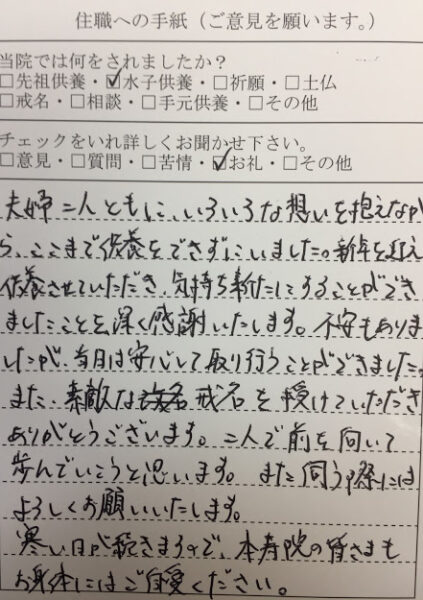 住職への手紙（ご意見を願います。）
当院では何をされましたか？
□先祖供養・☑水子供養・□祈願・□土仏
□戒名・□相談・□手元供養・□その他
チェックをいれ詳しくお聞かせ下さい。
□意見・□質問・□苦情・☑お礼・□その他
夫婦二人ともに、いろいろな想いを抱えなが
ら、ここまで供養をできずにいました。新年を迎え
供養させていただき、気持ち新たにすることができ
ましたことを、深く感謝いたします。不安もありま
したが、当日は安心して取り行うことができました。
また、素敵な戒名を授けていただき
ありがとうございます。二人で前を向いて
歩んでいこうと思います。また伺う際には
よろしくお願いいたします。
寒い日が続きますので、本寿院の皆さまも
お身体にはご自愛ください。